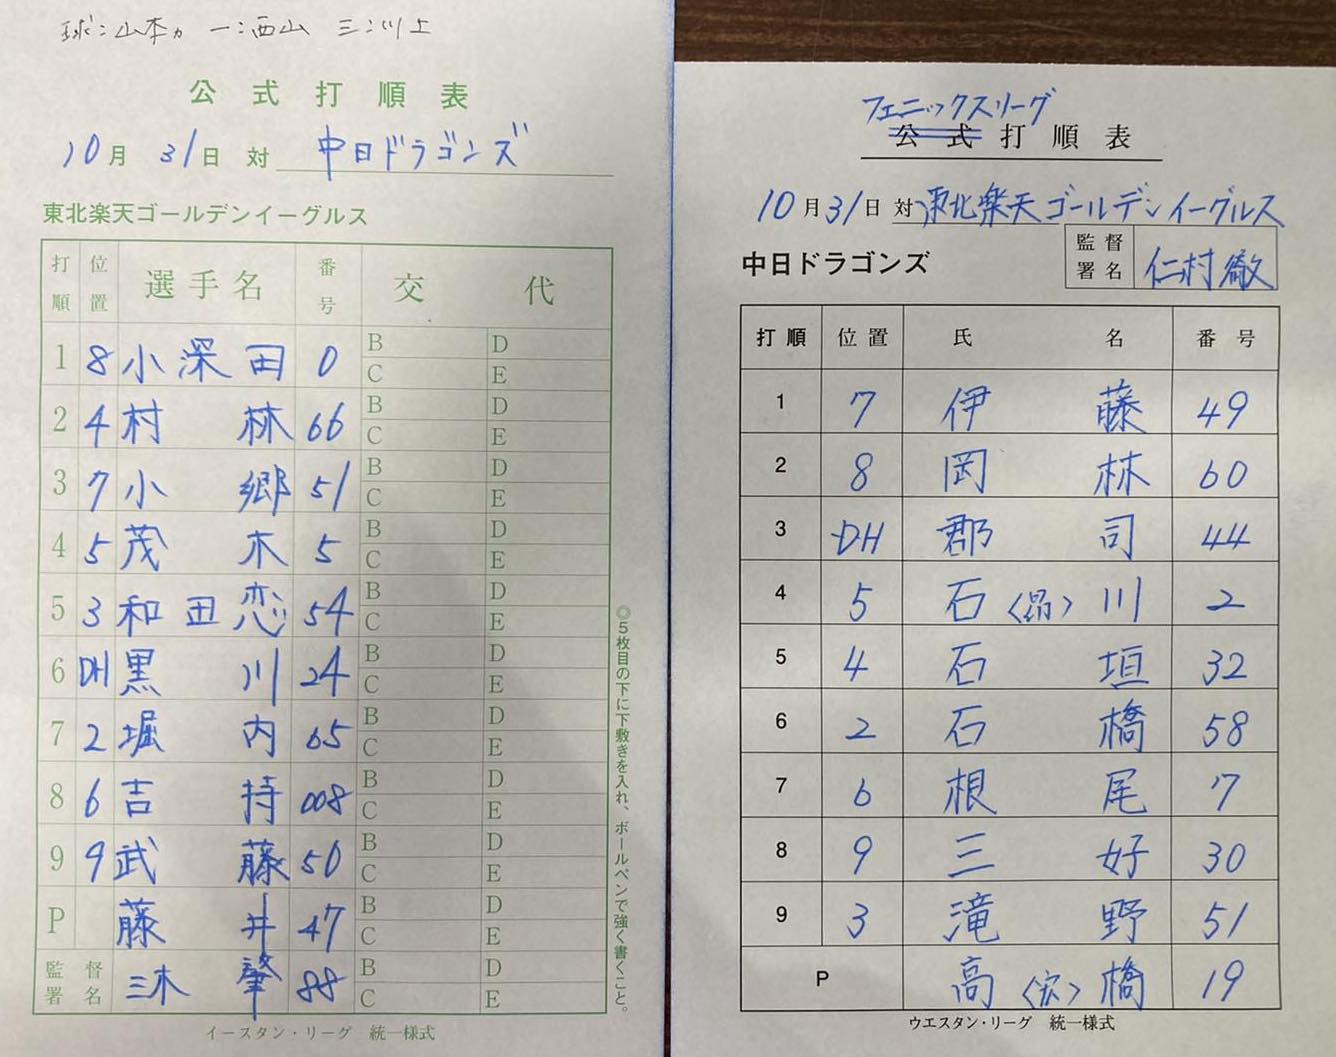 球:山本力 一:西山 三:川上
公式打順表
10月 31日 対 中日ドラゴンズ
東北楽天ゴールデンイーグルス
打順 位置 選手名 番号 交代
1 8 小深田 0 B D C E
2 4 村林 66 B D C E
3 7 小郷 51 B D C E
4 5 茂木 5 B D C E
5 3 和田恋 54 B D C E
6 DH 黒川 24 B D C E
7 2 堀内 65 B D C E
8 6 吉持 008 B D C E
9 9 武藤 50 B D C E
P 藤井 47 B D C E
監督署名 三木肇 88 B D C E
◎5枚目の下に下敷きを入れ、ボールペンで強く書くこと。
イースタン・リーグ 統一様式
フェニックスリーグ
公式打順表
10月31日 対 東北楽天ゴールデンイーグルス
監督署名 仁村徹
中日ドラゴンズ
打順 位置 氏名 番号
1 7 伊藤 49
2 8 岡林 60
3 DH 郡司 44
4 5 石〈昂〉川 2
5 4 石垣 32
6 2 石橋 58
7 6 根尾 7
8 9 三好 30
9 3 滝野 51
P 高〈宏〉橋 19
ウエスタン・リーグ 統一様式